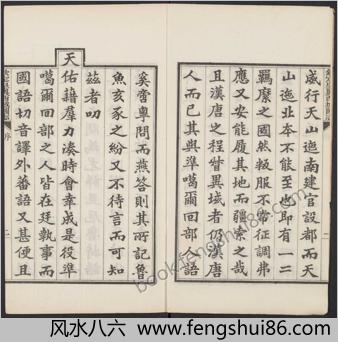 威行天山迤南建官設都而天
山迤北本不能至也即有一二
羈縻之國然叛服不常征調弗
應又安能履其地而疆索之哉
且漢唐之程督異域者仍漢唐
人而已其與準噶爾回部人語
奚啻粵問而燕答則其所記魯
魚亥豕之紛又不待言而可知
茲者叨
天佑藉羣力湊時會幸成是役準
噶爾回部之人皆在廷執事而
國語切音譯外蕃語又甚便且
序
二
book.fengshui86.com
风水八六 www.fengshui86.com